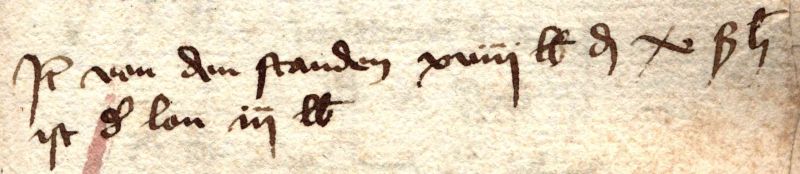 Jt von den standen xviiij lb d x ßh
ist d' lon iij lb